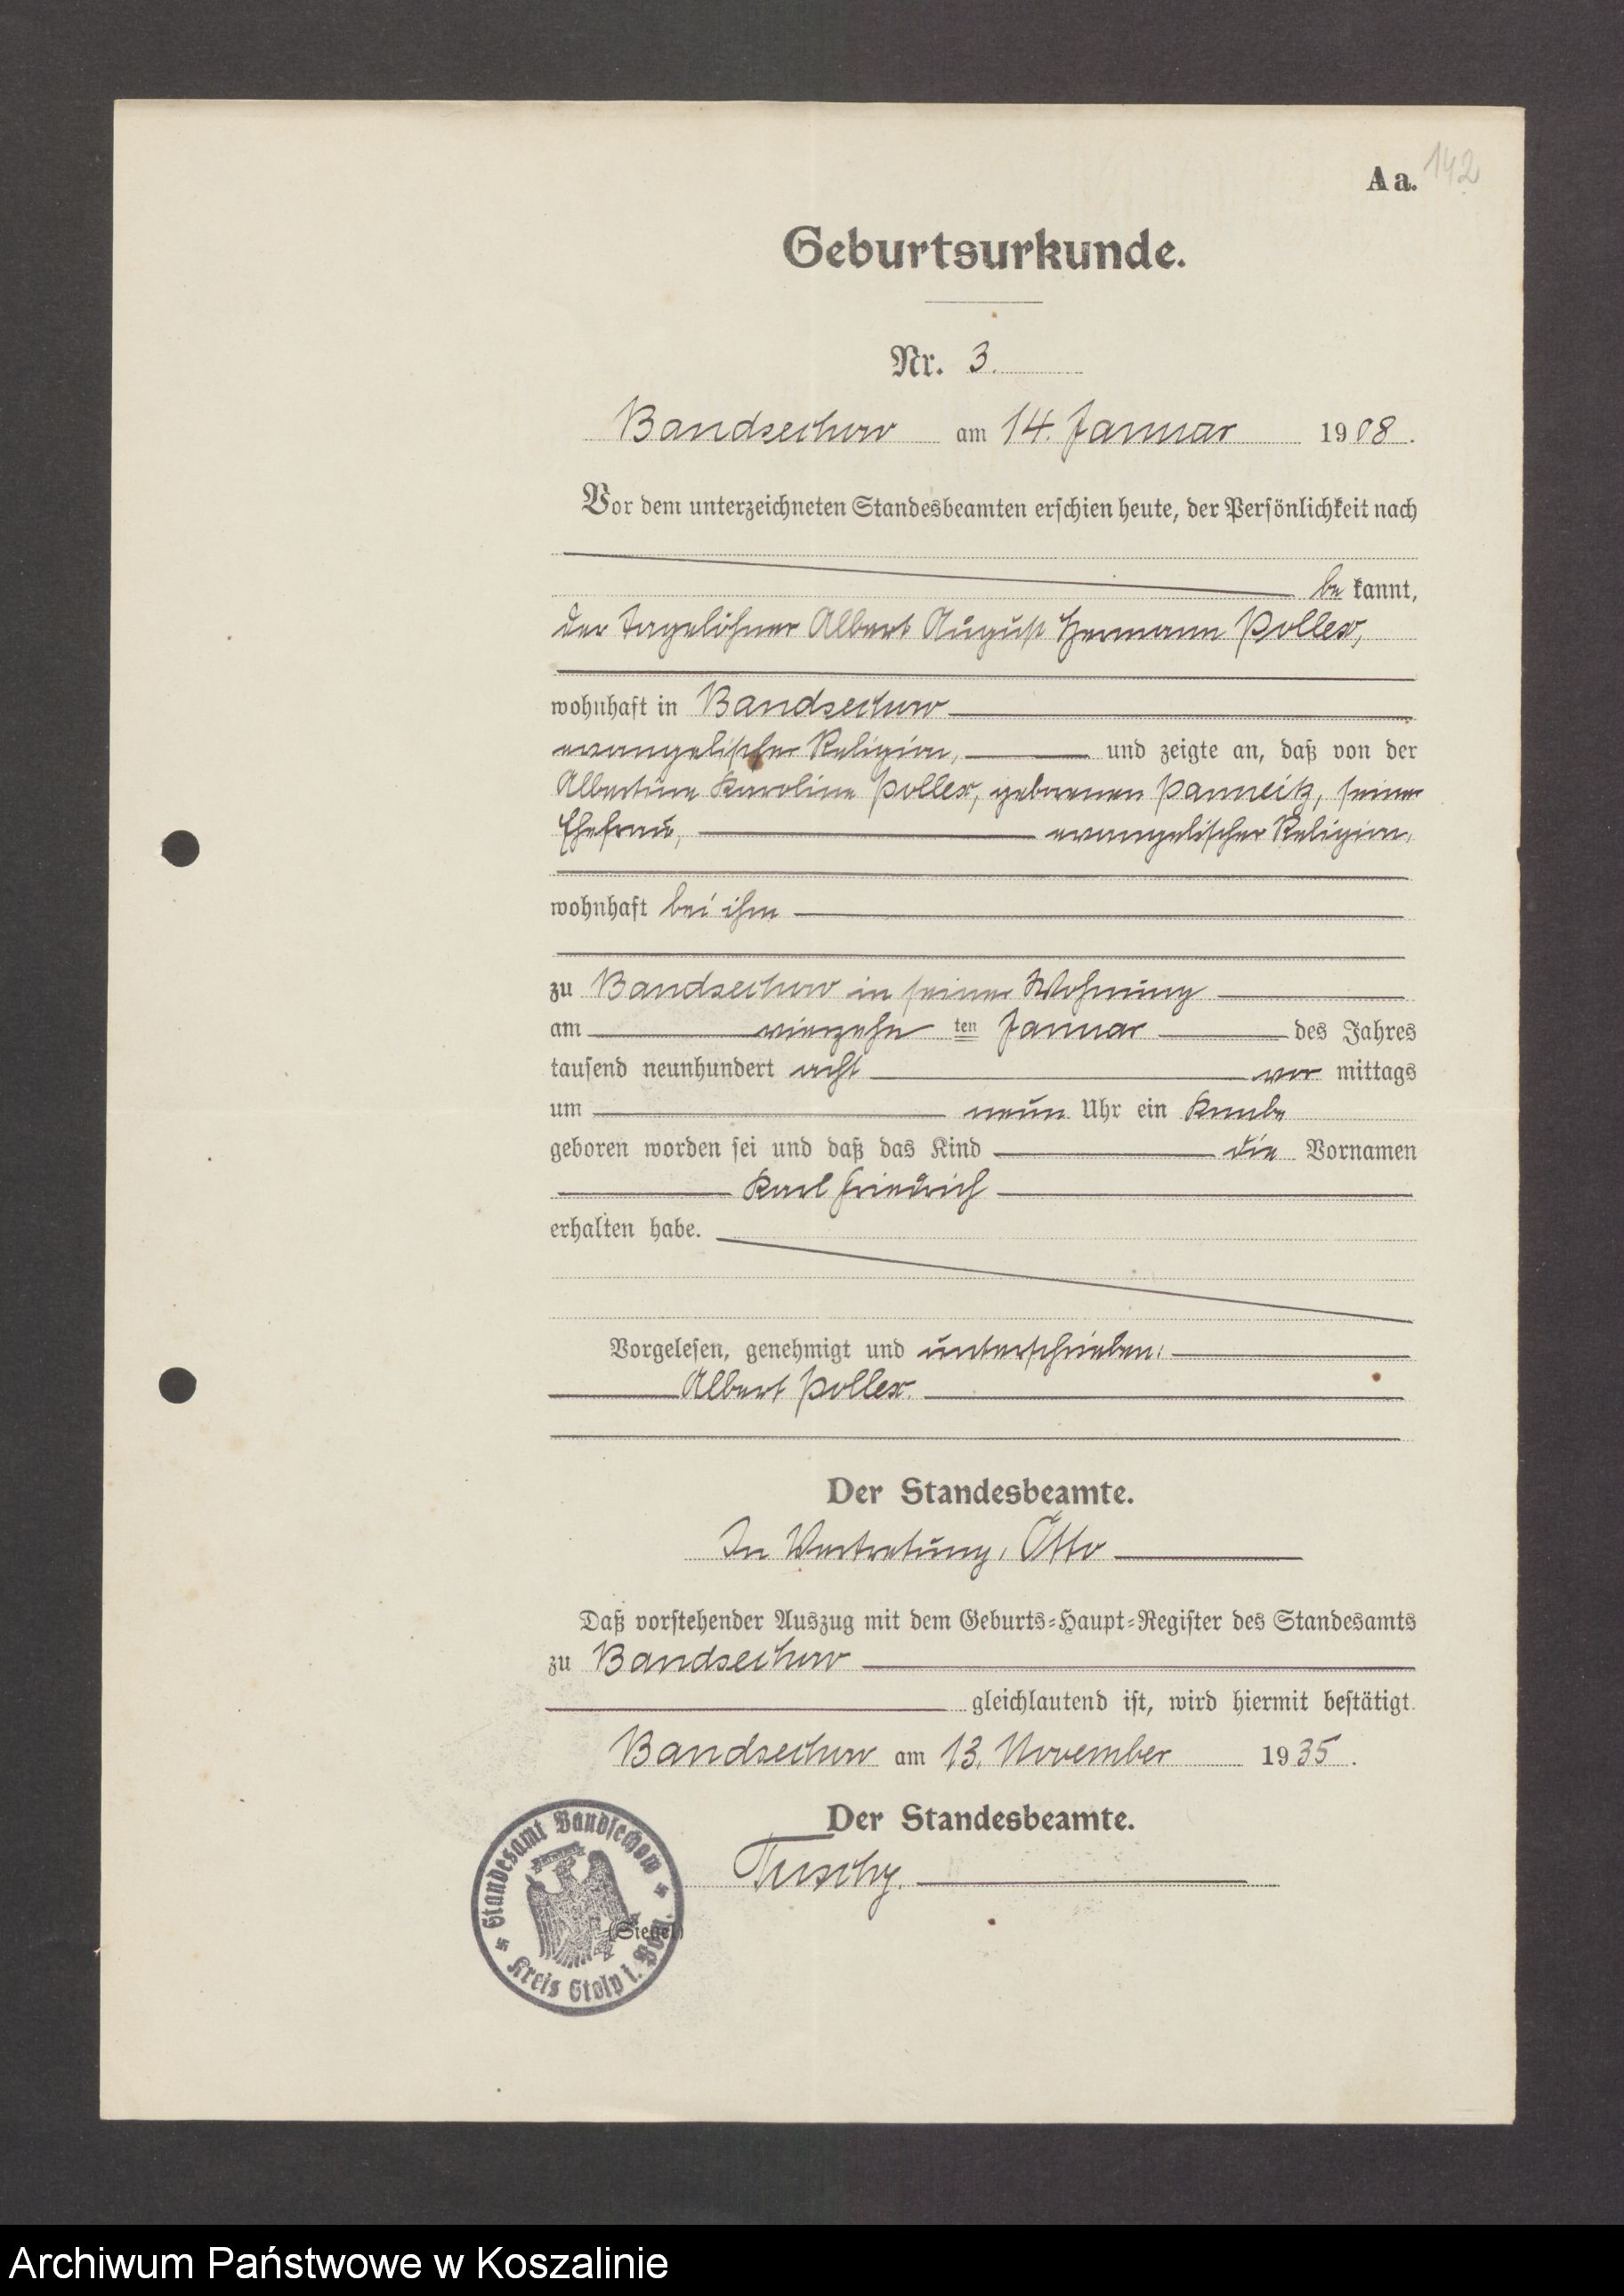 142
Aa.
Geburtsurkunde.
Nr. 3.
Bandsechow am 14. Januar 1908.
Vor dem unterzeichneten Standesbeamten erschien heute, der Persönlichkeit nach
bekannt,
der Tagelöhner Albert August Hermann Pollex,
wohnhaft in Bandsechow
evangelischer Religion, und zeigte an, daß von der
Albertine Karoline Pollex, geborenen Panneitz, seiner
Ehefrau, evangelischer Religion,
wohnhaft bei ihm
zu Bandsechow in seiner Wohnung
am vierzehnten Januar des Jahres
tausend neunhundert acht vormittags
um neun Uhr ein Knabe
geboren worden sei und daß das Kind die Vornamen
Karl Friedrich
erhalten habe.
Vorgelesen, genehmigt und unterschrieben.
Albert Pollex.
Der Standesbeamte.
In Vertretung, Otto
Daß vorstehender Auszug mit dem Geburts-Haupt-Register des Standesamts
zu Bandsechow
gleichlautend ist, wird hiermit bestätigt.
Bandsechow am 13. November 1935.
Der Standesbeamte.
Tuschy.
(Siegel)
Standesamt Bandsechow
Kreis Stolp i. Pom.
Archiwum Państwowe w Koszalinie